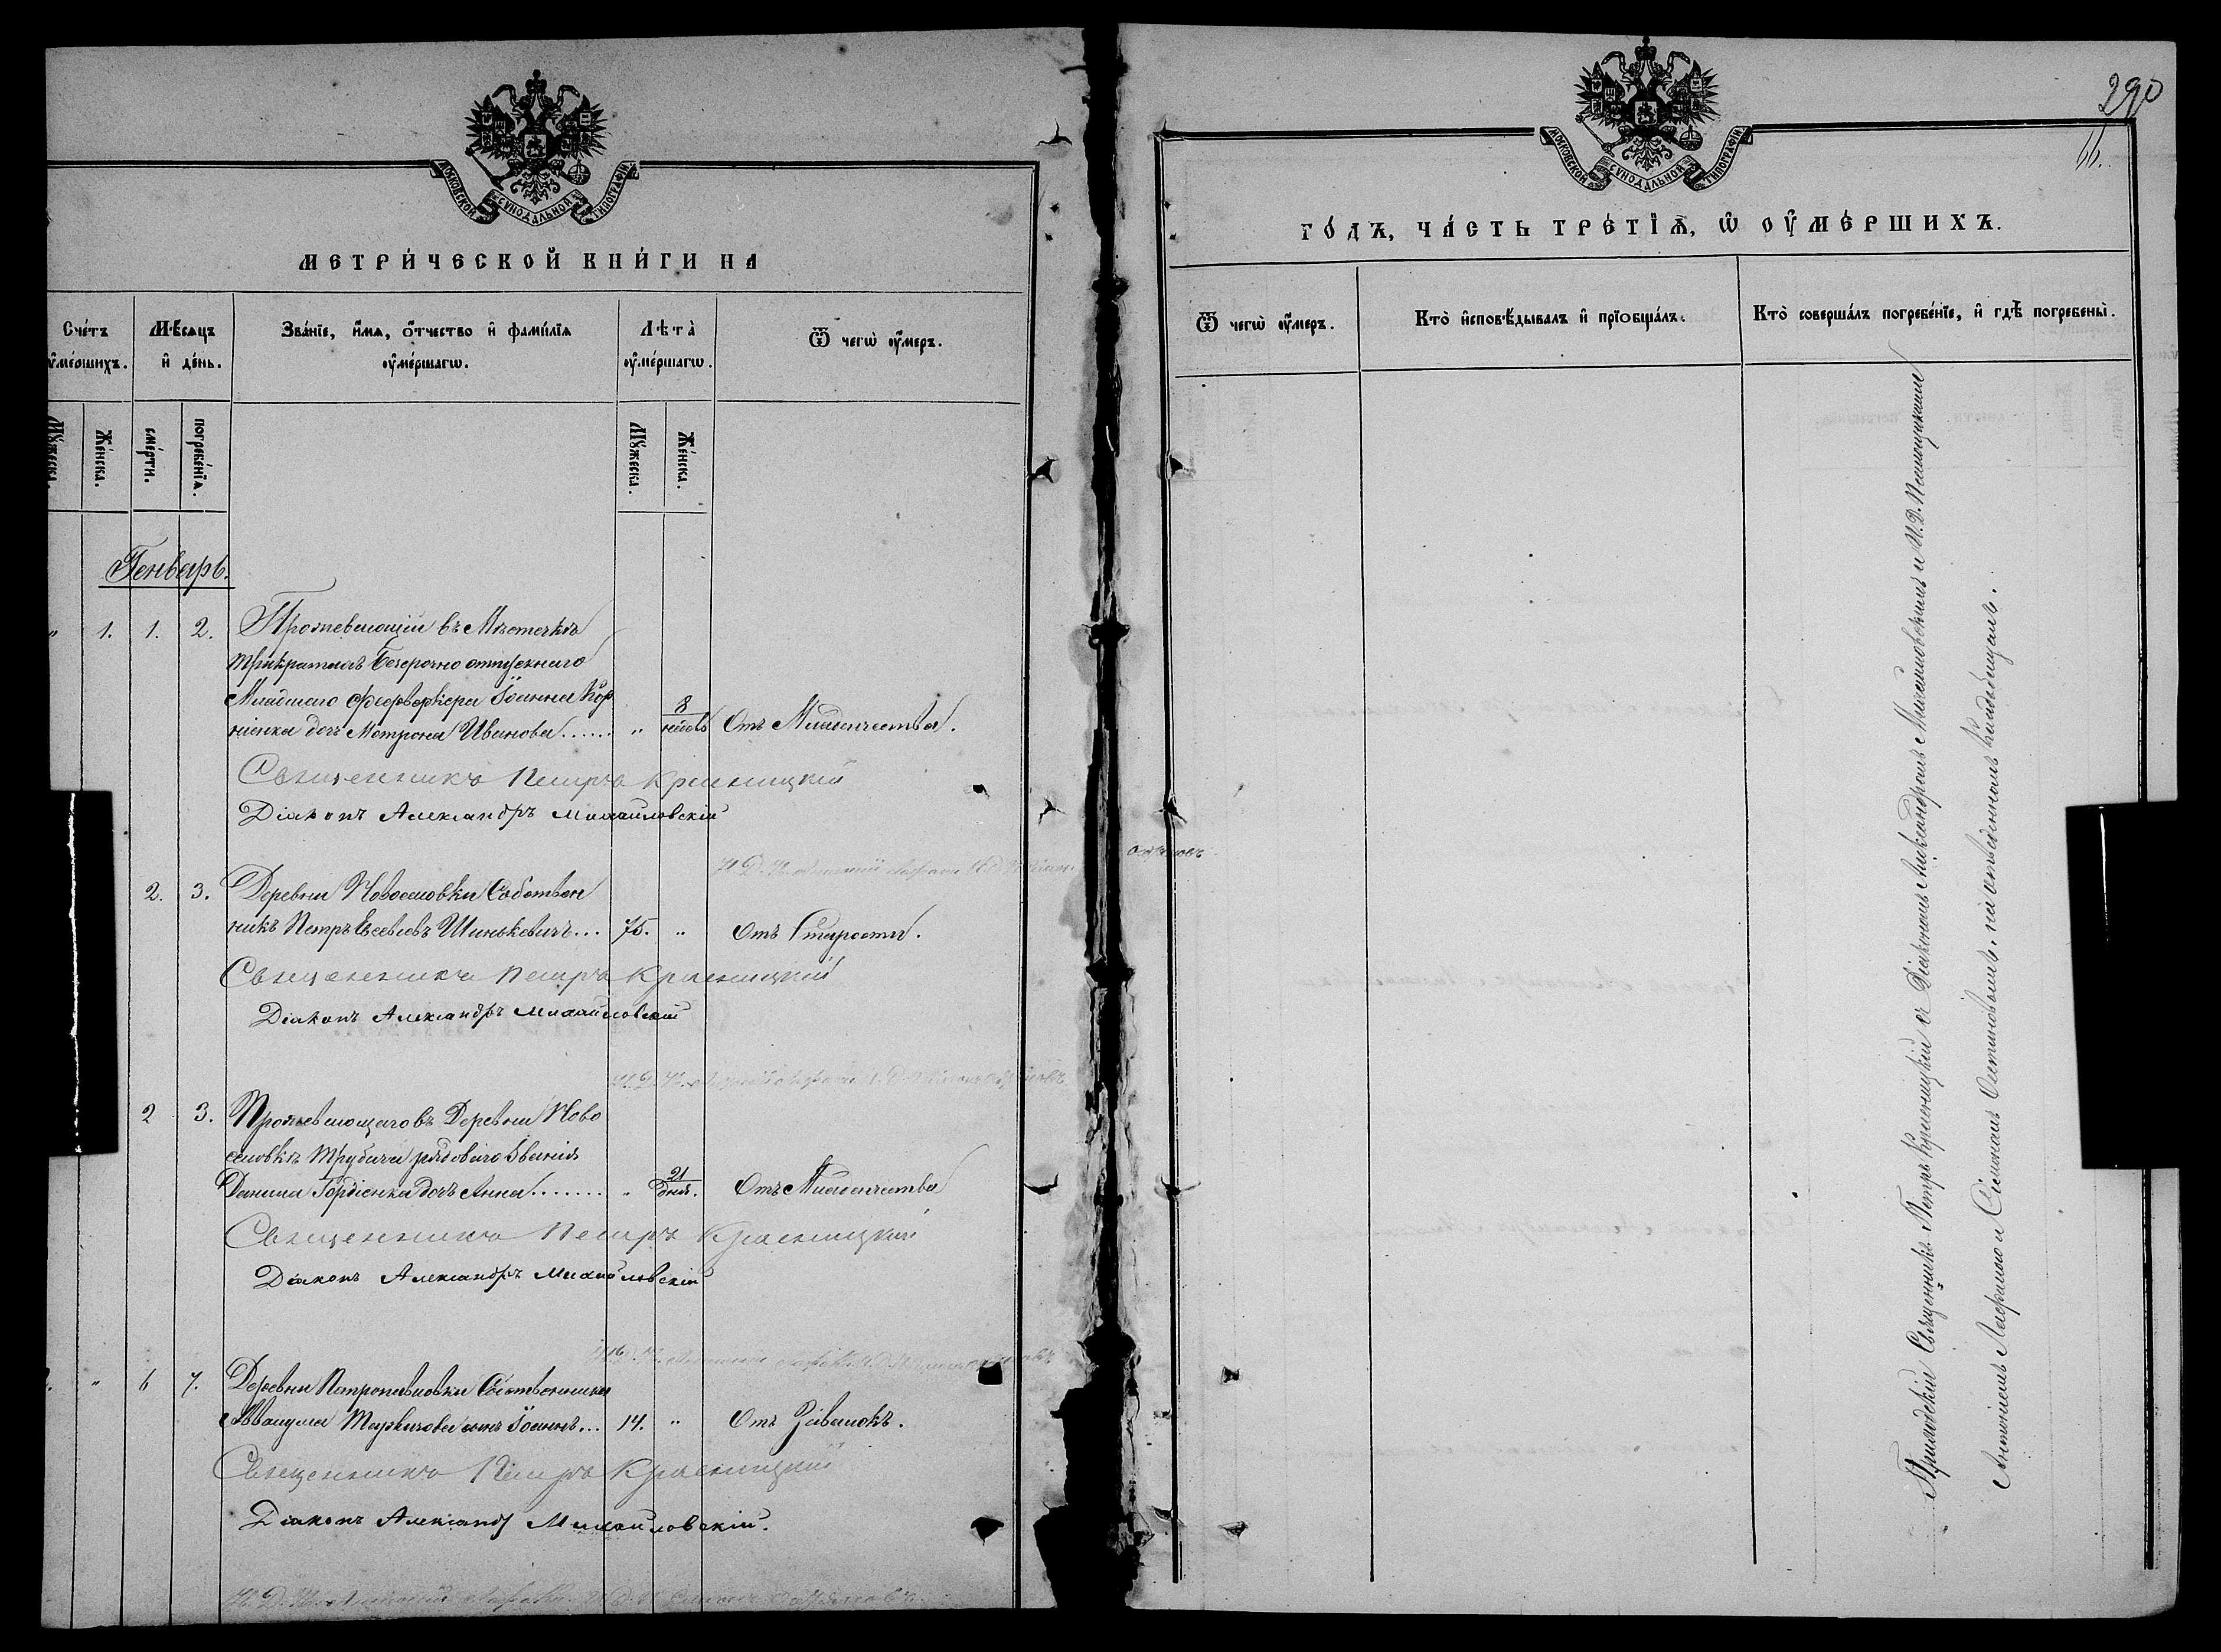 МОСКОВСКОЙ СѴНОДАЛЬНОЙ ТИПОГРАФІИ
МЕТРИ́ЧЕСКОЙ КНИ́ГИ НА
Сче́тъ оу҆ме́ршихъ.
Мѣ́сяцъ и҆ де́нь.
Зва́нїе, и҆́мя, ѻ҆́тчество и҆ фами́лїя оу҆ме́ршагѡ.
Лѣта̀ оу҆ме́ршагѡ.
Ѿ чегѡ̀ оу҆́меръ.
Мꙋ́жеска.
Же́нска.
сме́рти.
погребе́нїѧ.
Мꙋ́жеска.
Же́нска.
Генварь.
" 1. 1. 2. Проживающій въ Мѣстечкѣ
Трикратахъ Безсрочно отпускнаго
Младшаго Фейерверкера Іоанна Кор
ніенка дочь Матрона Иванова...... " 8 Отъ Младенчества.
Священникъ Петръ Красницкій
Діаконъ Александръ Михайловскій
2. 3. Деревни Новоселовки Собствен
никъ Петръ Евсевіевъ Шинькевичъ... 75. " Отъ Старости.
Священникъ Петръ Красницкій
Діаконъ Александръ Михайловскій
2 3. Проживающаго въ Деревни Ново
селовкѣ Трубача рядоваго званія
Данила Гордіенка дочь Анна....... " 21 дня. Отъ Младенчества
Священникъ Петръ Красницкій
Діаконъ Александръ Михайловскій
" 6 7. Деревни Петропавловки Собственника
Аввакума сынъ Іоаннъ... 14. " Отъ
Священникъ Петръ Красницкій
Діаконъ Александ Михайловскій.
290
66.
МОСКОВСКОЙ СѴНОДАЛЬНОЙ ТИПОГРАФІИ
ГО́ДЪ, ЧА́СТЬ ТРЕ́ТЇѦ, Ѡ҆ ОУ҆МЕ́РШИХЪ.
Ѿ чегѡ̀ оу҆́меръ.
Кто̀ и҆сповѣ́дывалъ и҆ прїобща́лъ.
Кто̀ соверша́лъ погребе́нїе, и҆ гдѣ̀ погребены̀.
Приходскій Священникъ Петръ Красницкій съ Діакономъ Александромъ Михайловскимъ и И. Д. Псаломщиками
Антоніемъ и Сімеономъ на отведенномъ кладбищѣ.